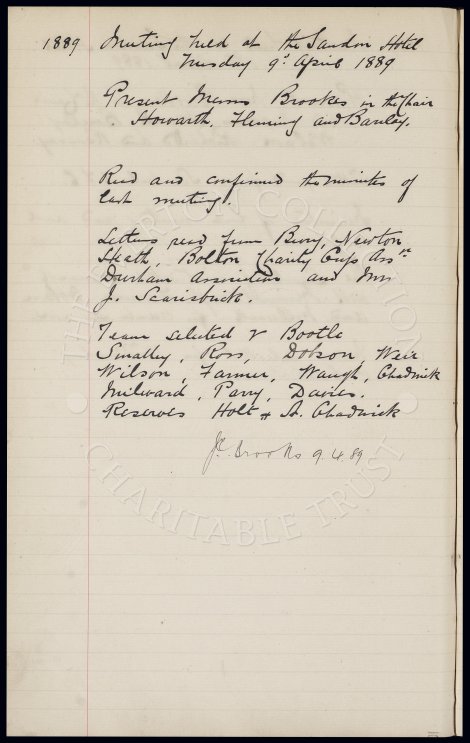 1889 Meeting held at the Sandon Hotel
Tuesday 9th April 1889
Present Messrs Brookes in the Chair
Howarth, Fleming and Barclay.
Read and confirmed the minutes of
last meeting.
Letters read from Bury, Newton
Heath, Bolton Charity Cup Assn
Durham Association and
J. Scarisbrick.
Team selected v Bootle
Smalley, Ross, Dobson, Weir
Wilson, Farmer, Waugh, Chadwick
Milward, Parry, Davies.
Reserves Holt & A. Chadwick
Brooks 9.4.89
THE EVERTON COLLECTION
CHARITABLE TRUST